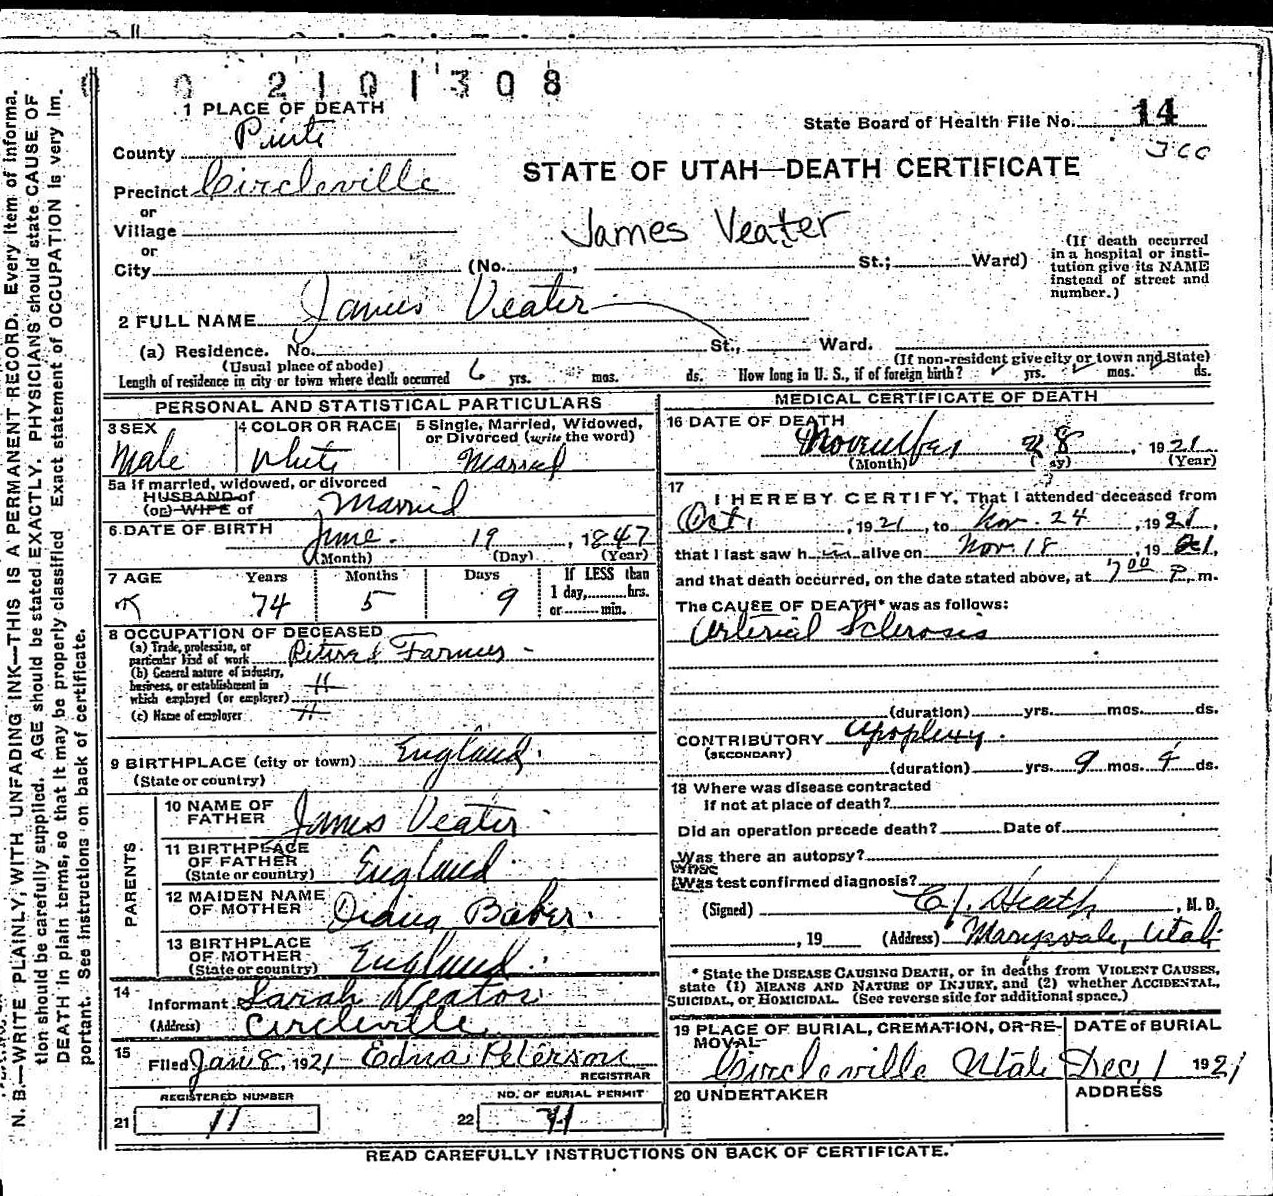 0 0 2101308
1 PLACE OF DEATH
State Board of Health File No. 14
County Piute
STATE OF UTAH—DEATH CERTIFICATE
Precinct Circleville
or
Village
James Veater
or
City (No. , St.; Ward)
(If death occurred
in a hospital or insti-
tution give its NAME
instead of street and
number.)
2 FULL NAME James Veater
(a) Residence. No. St., Ward.
(Usual place of abode)
(If non-resident give city or town and State)
Length of residence in city or town where death occurred 6 yrs. mos. ds. How long in U. S., if of foreign birth? yrs. mos. ds.
PERSONAL AND STATISTICAL PARTICULARS
3 SEX
Male
4 COLOR OR RACE
White
5 Single, Married, Widowed,
or Divorced (write the word)
Married
5a If married, widowed, or divorced
HUSBAND of
(or) WIFE of Married
6 DATE OF BIRTH
June 19, 1847
(Month) (Day) (Year)
7 AGE Years Months Days If LESS than
1 day, hrs.
74 5 9 or min.
8 OCCUPATION OF DECEASED
(a) Trade, profession, or
particular kind of work Retired Farmer
(b) General nature of industry,
business, or establishment in
which employed (or employer)
(c) Name of employer
9 BIRTHPLACE (city or town) England
(State or country)
PARENTS
10 NAME OF
FATHER James Veater
11 BIRTHPLACE
OF FATHER
(State or country) England
12 MAIDEN NAME
OF MOTHER Baker
13 BIRTHPLACE
OF MOTHER
(State or country) England
14
Informant Sarah Veator
(Address) Circleville
15
Filed Jan 8, 1921 Edna Peterson
REGISTRAR
REGISTERED NUMBER
21 11
NO. OF BURIAL PERMIT
22 11
MEDICAL CERTIFICATE OF DEATH
16 DATE OF DEATH
November 28, 1921
(Month) (Day) (Year)
17
I HEREBY CERTIFY, That I attended deceased from
Oct. , 1921, to Nov. 24, 1921,
that I last saw him alive on Nov. 18, 1921,
and that death occurred, on the date stated above, at 7 00 P. m.
The CAUSE OF DEATH* was as follows:
Arterial Sclerosis
(duration) yrs. mos. ds.
CONTRIBUTORY Apoplexy.
(SECONDARY)
(duration) yrs. 9 mos. 4 ds.
18 Where was disease contracted
if not at place of death?
Did an operation precede death? Date of
Was there an autopsy?
What
Was test confirmed diagnosis?
(Signed) E.J. Heath, M. D.
, 19 (Address) Marysvale, Utah
* State the DISEASE CAUSING DEATH, or in deaths from VIOLENT CAUSES,
state (1) MEANS AND NATURE OF INJURY, and (2) whether ACCIDENTAL,
SUICIDAL, or HOMICIDAL. (See reverse side for additional space.)
19 PLACE OF BURIAL, CREMATION, OR RE-
MOVAL
Circleville Utah
DATE OF BURIAL
Dec 1 1921
20 UNDERTAKER
ADDRESS
READ CAREFULLY INSTRUCTIONS ON BACK OF CERTIFICATE.
N. B.—WRITE PLAINLY, WITH UNFADING INK—THIS IS A PERMANENT RECORD. Every item of informa-
tion should be carefully supplied. AGE should be stated EXACTLY. PHYSICIANS should state CAUSE OF
DEATH in plain terms, so that it may be properly classified. Exact statement of OCCUPATION is very im-
portant. See instructions on back of certificate.